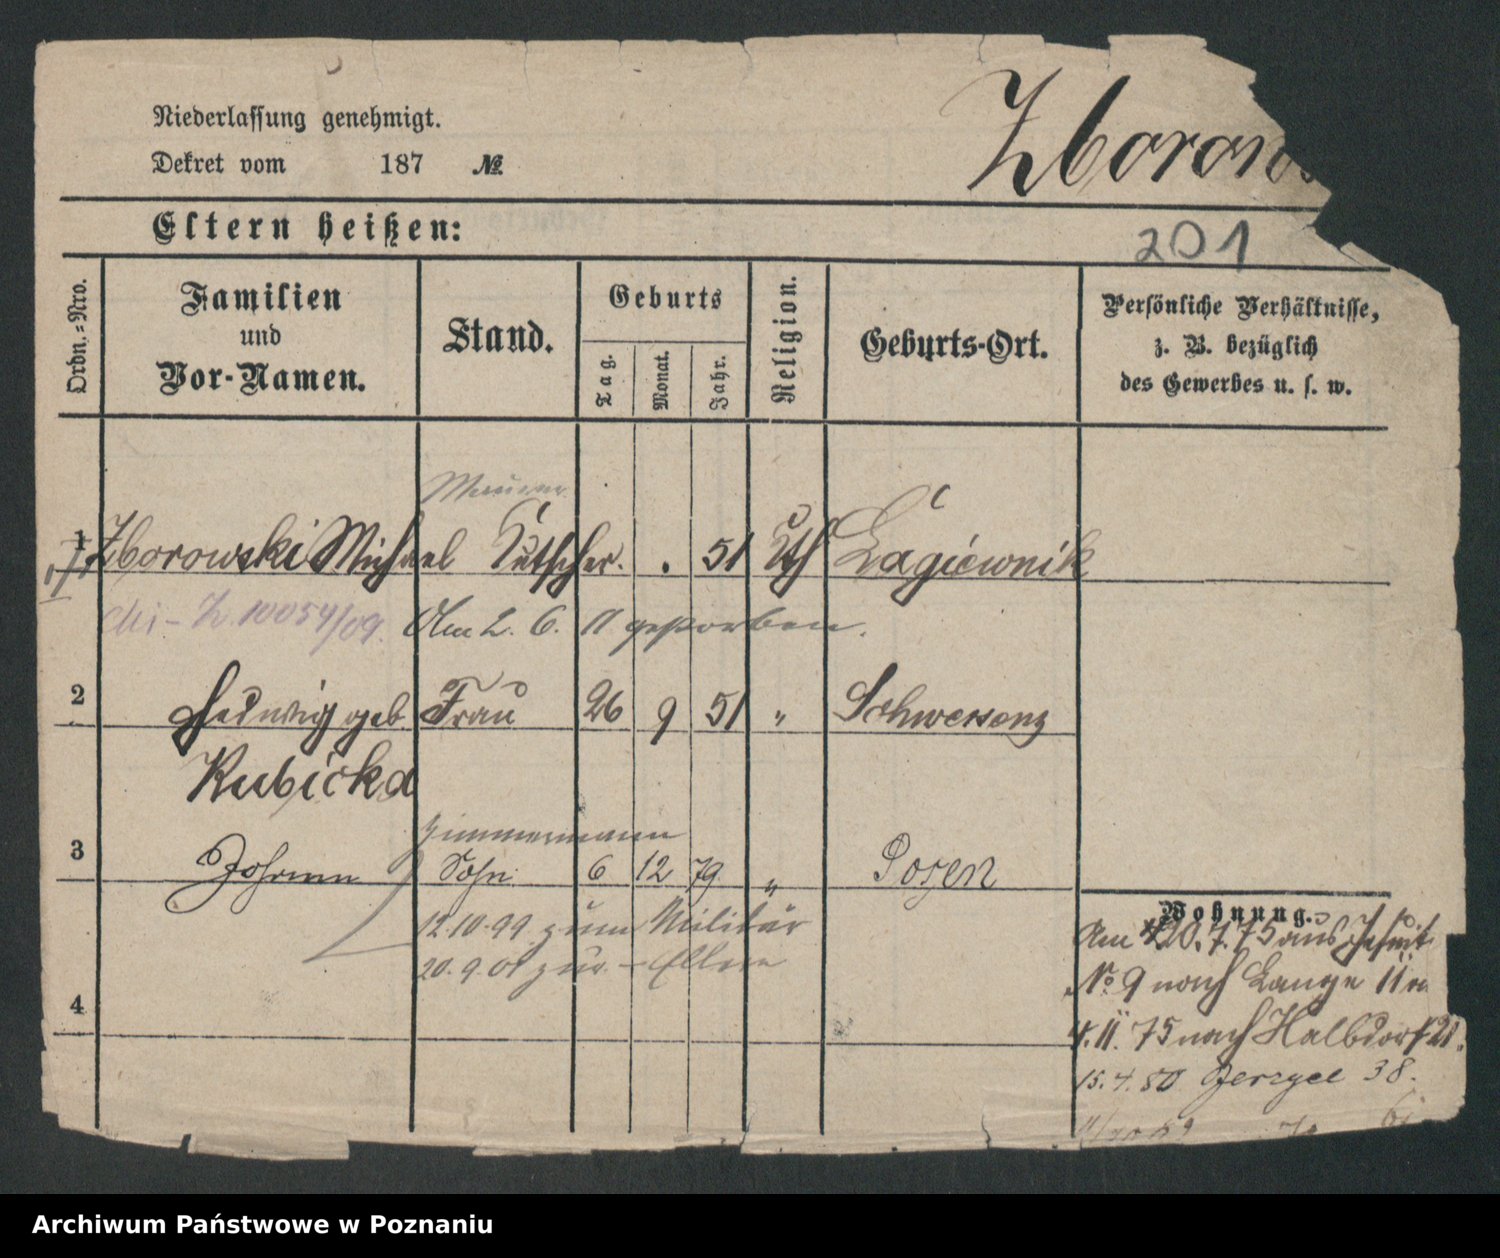 Niederlassung genehmigt.
Dekret vom 187 №
Zborows
Eltern heißen:
201
Ordn.=Nro.
Familien
und
Vor-Namen.
Stand.
Geburts
Tag.
Monat.
Jahr.
Religion.
Geburts-Ort.
Persönliche Verhältnisse,
z. B. bezüglich
des Gewerbes u. s. w.
Maurer
1 Zborowski Michael Kutscher. . 51 kth Łagiewnik
Z. 10054/09. Am 2. 6. 11 gestorben.
2 Hedwig geb. Frau 26 9 51 " Schwersenz
Kubicka
Zimmermann
3 Johann Sohn 6 12 79 " Posen
12.10.99 zum Militär
20.9.01 zur. - Eltern
4
Wohnung.
Am 20.7.75 aus Jesuit
№ 9 nach Lange 11
4.11.75 nach Halbdorf 21.
15.4.80 38.